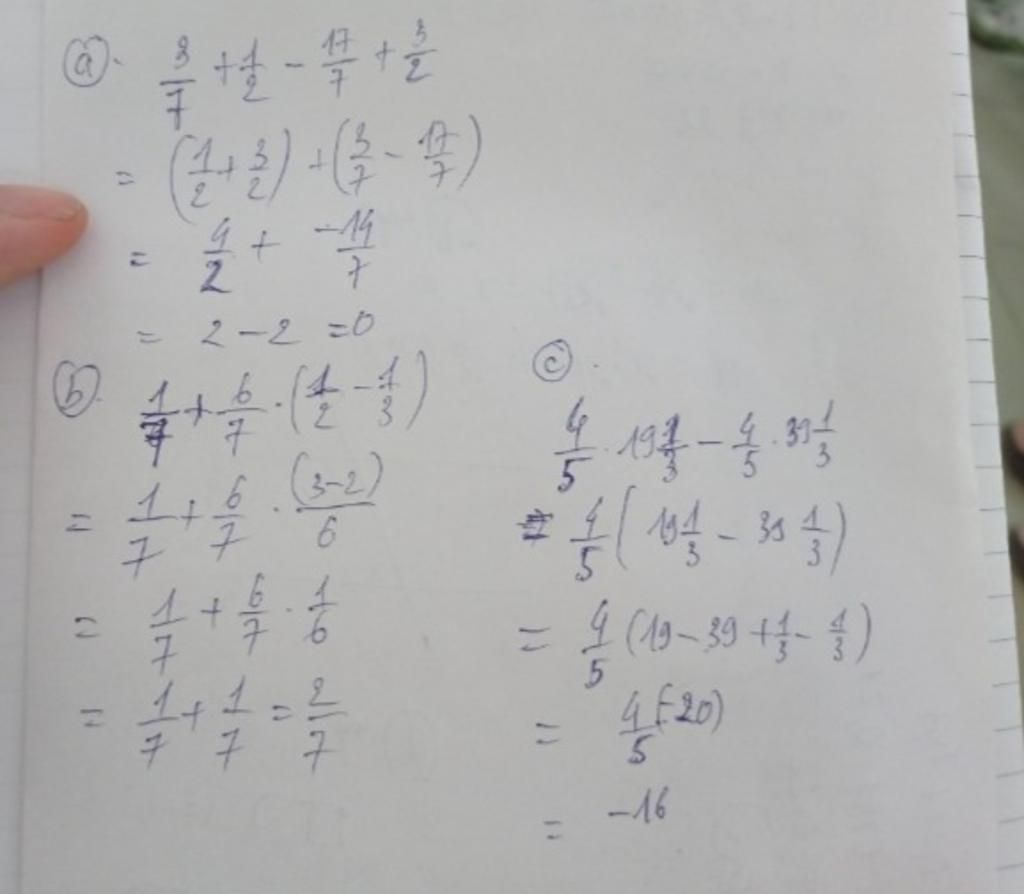 a. 3/7 + 1/2 - 17/7 + 3/2
= (1/2 + 3/2) + (3/7 - 17/7)
= 4/2 + -14/7
= 2 - 2 = 0
b. 1/7 + 6/7 . (1/2 - 1/3)
= 1/7 + 6/7 . (3-2)/6
= 1/7 + 6/7 . 1/6
= 1/7 + 1/7 = 2/7
c.
4/5 . 19 1/3 - 4/5 . 39 1/3
= 4/5 (19 1/3 - 39 1/3)
= 4/5 (19 - 39 + 1/3 - 1/3)
= 4/5 (-20)
= -16